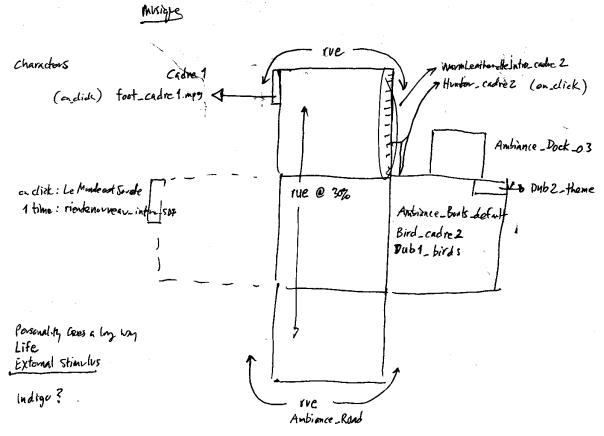 Musique
rue
Characters
Cadre 1
(on_click) foot_cadre1.mp3
Hunter_cadre2 (on_click)
Ambiance_Dock_03
on click: Le Monde est Sourde
1 time:
rue @ 30%
Dub2_theme
Ambiance_Boats_default
Bird_cadre2
Dub1_birds
Personality Goes a long way
Life
External Stimulus
Indigo?
rue
Ambiance_Road